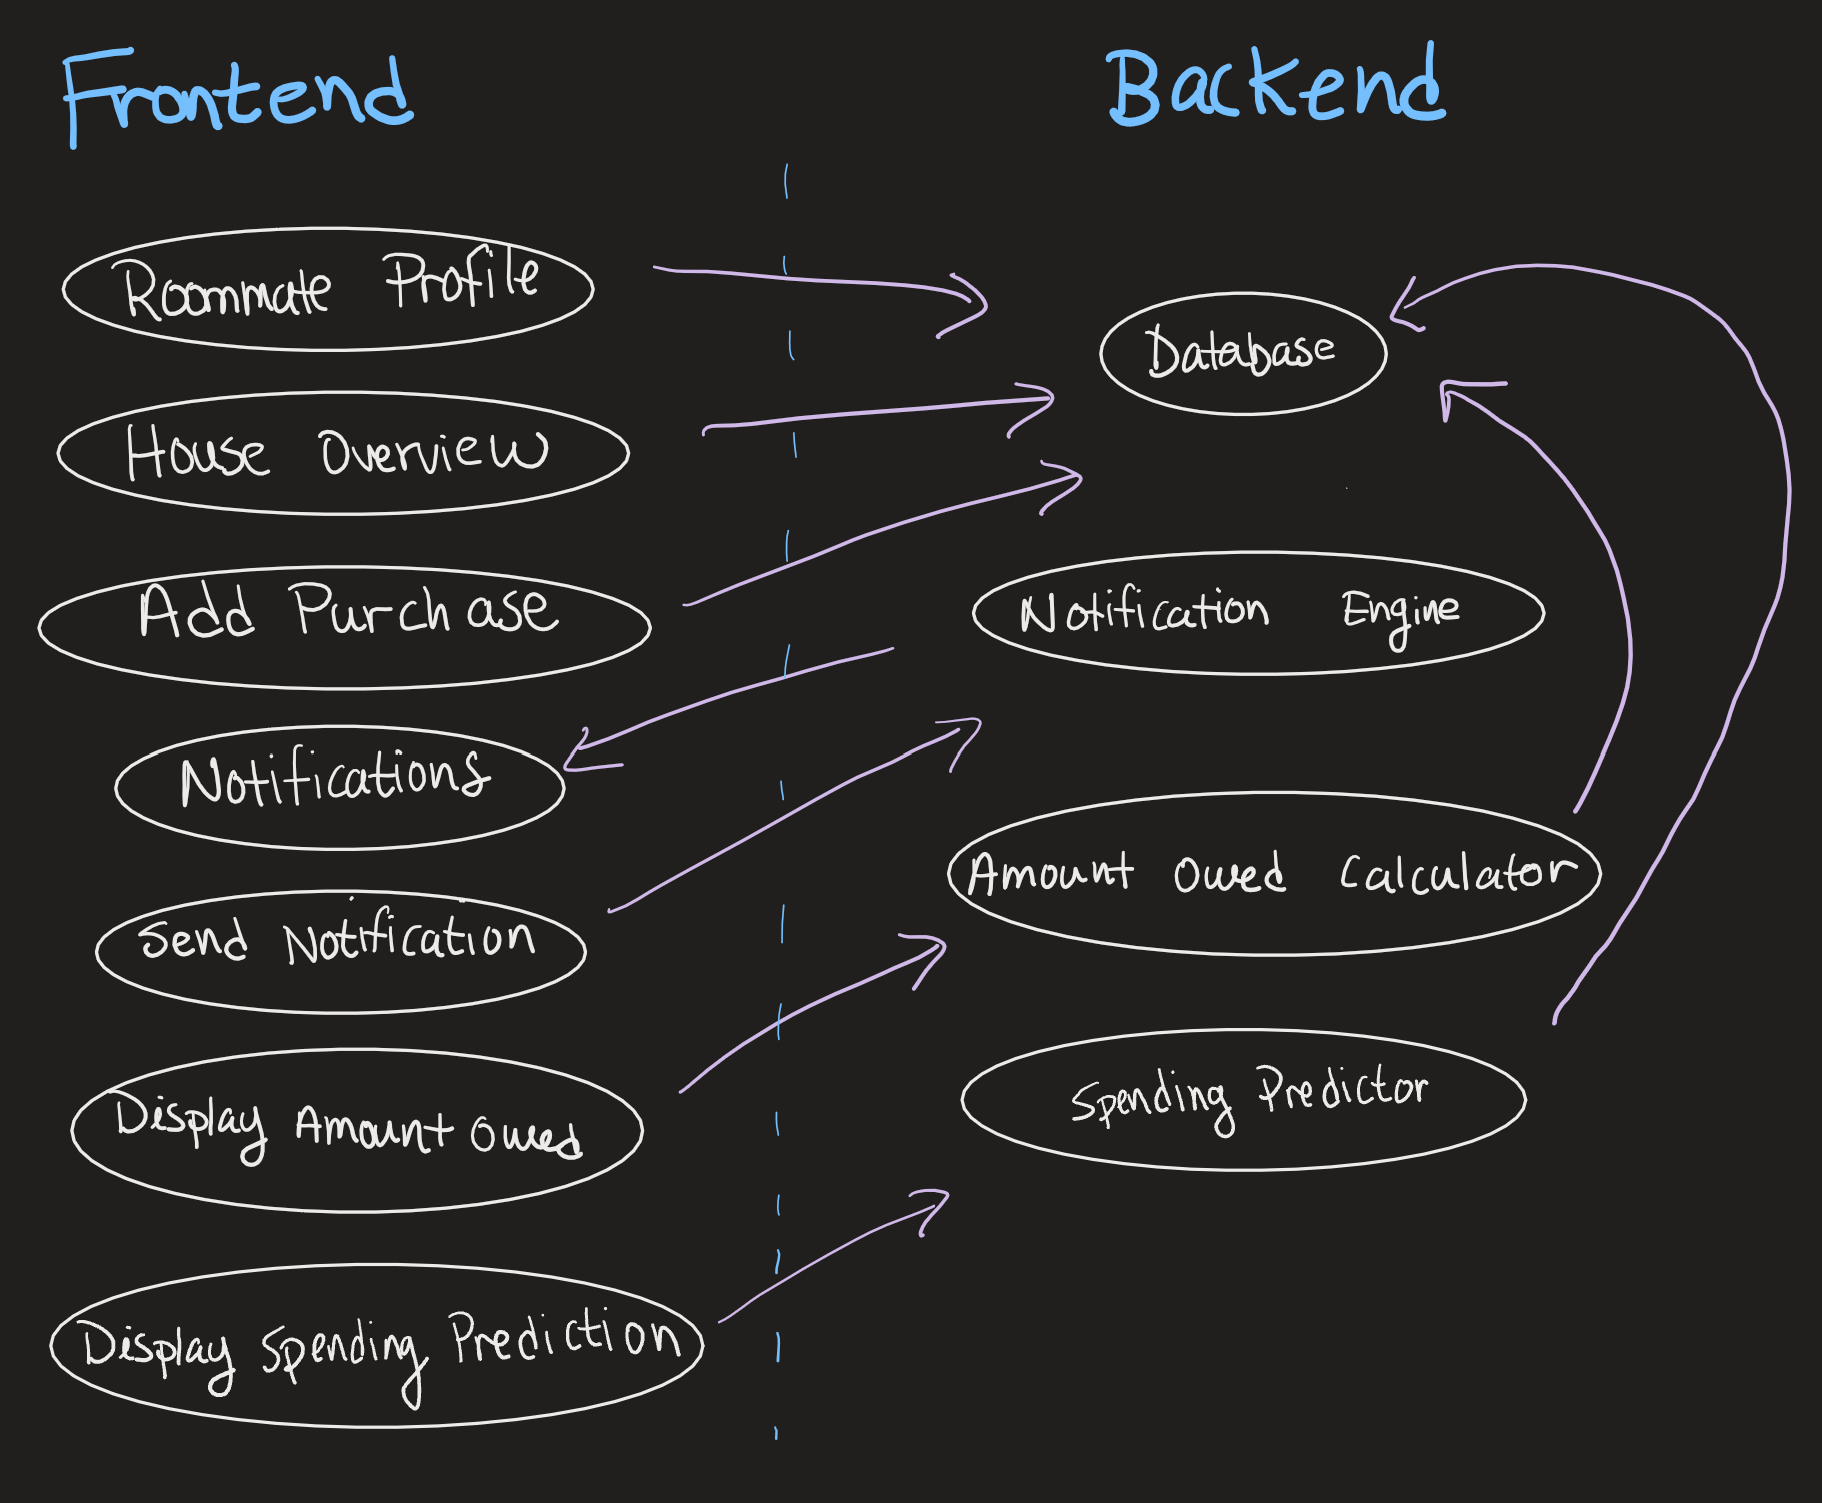 Frontend
Backend
Roommate Profile
House Overview
Add Purchase
Notifications
Send Notification
Display Amount Owed
Display Spending Prediction
Database
Notification Engine
Amount Owed Calculator
Spending Predictor